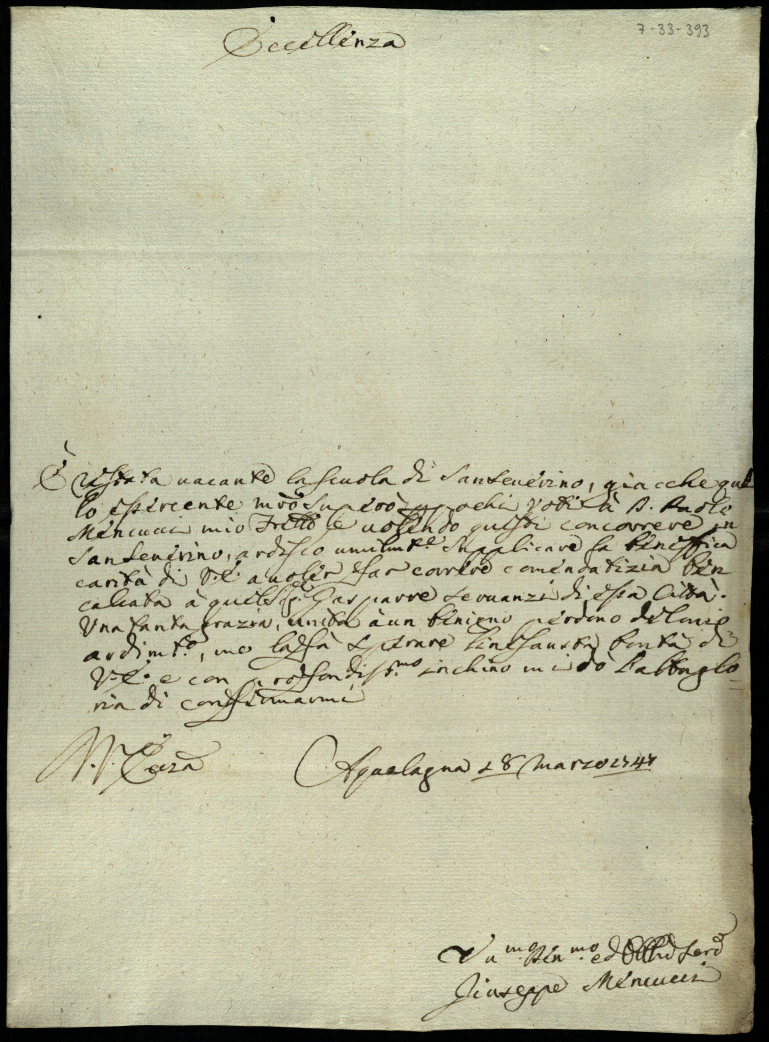 7-33-393
Eccellenza
È restata vacante la scuola di Sanseverino, giacche quel
lo esercente pochi voti à D. Paolo
Mencucci mio Frello e volendo questi concorrere in
Sanseverino, ardisco umilmte supplicare la benefica
carità di V.E. a voler far correre comendatizia ben
calcata à quel Sigr Gasparre Servanzi di essa Città.
Una tanta grazia, unita à un benigno perdono del mio
ardimto, me lassa sperare bontà di
V.E. e con profondissmo inchino mi dò l'alta glo=
ria di confirmarmi
V. Ecza
Aqualagna 28 Marzo 1747
Giuseppe Mencucci